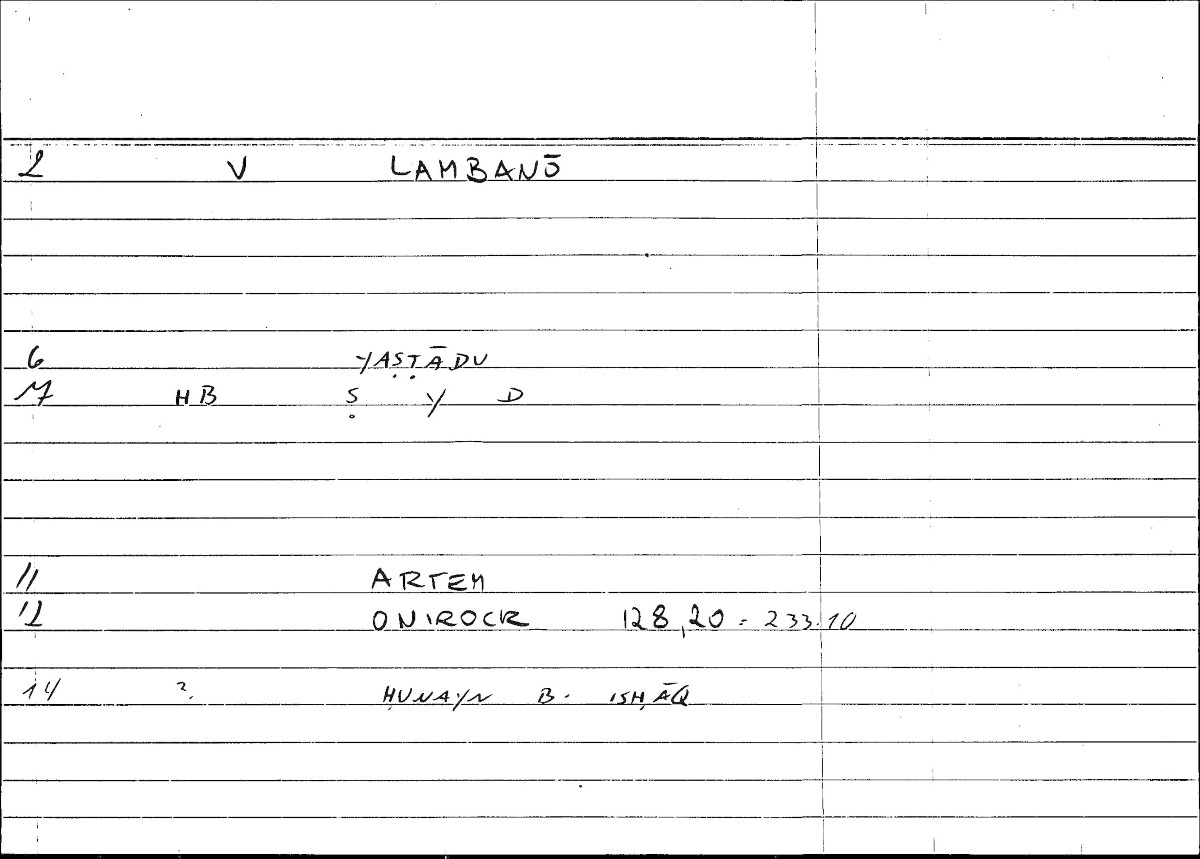 2 V LAMBANŌ
6 YAṢṬĀDU
7 HB Ṣ Y D
11 ARTEM
12 ONIROCR 128,20 = 233.10
14 ? ḤUNAYN B. ISḤĀQ